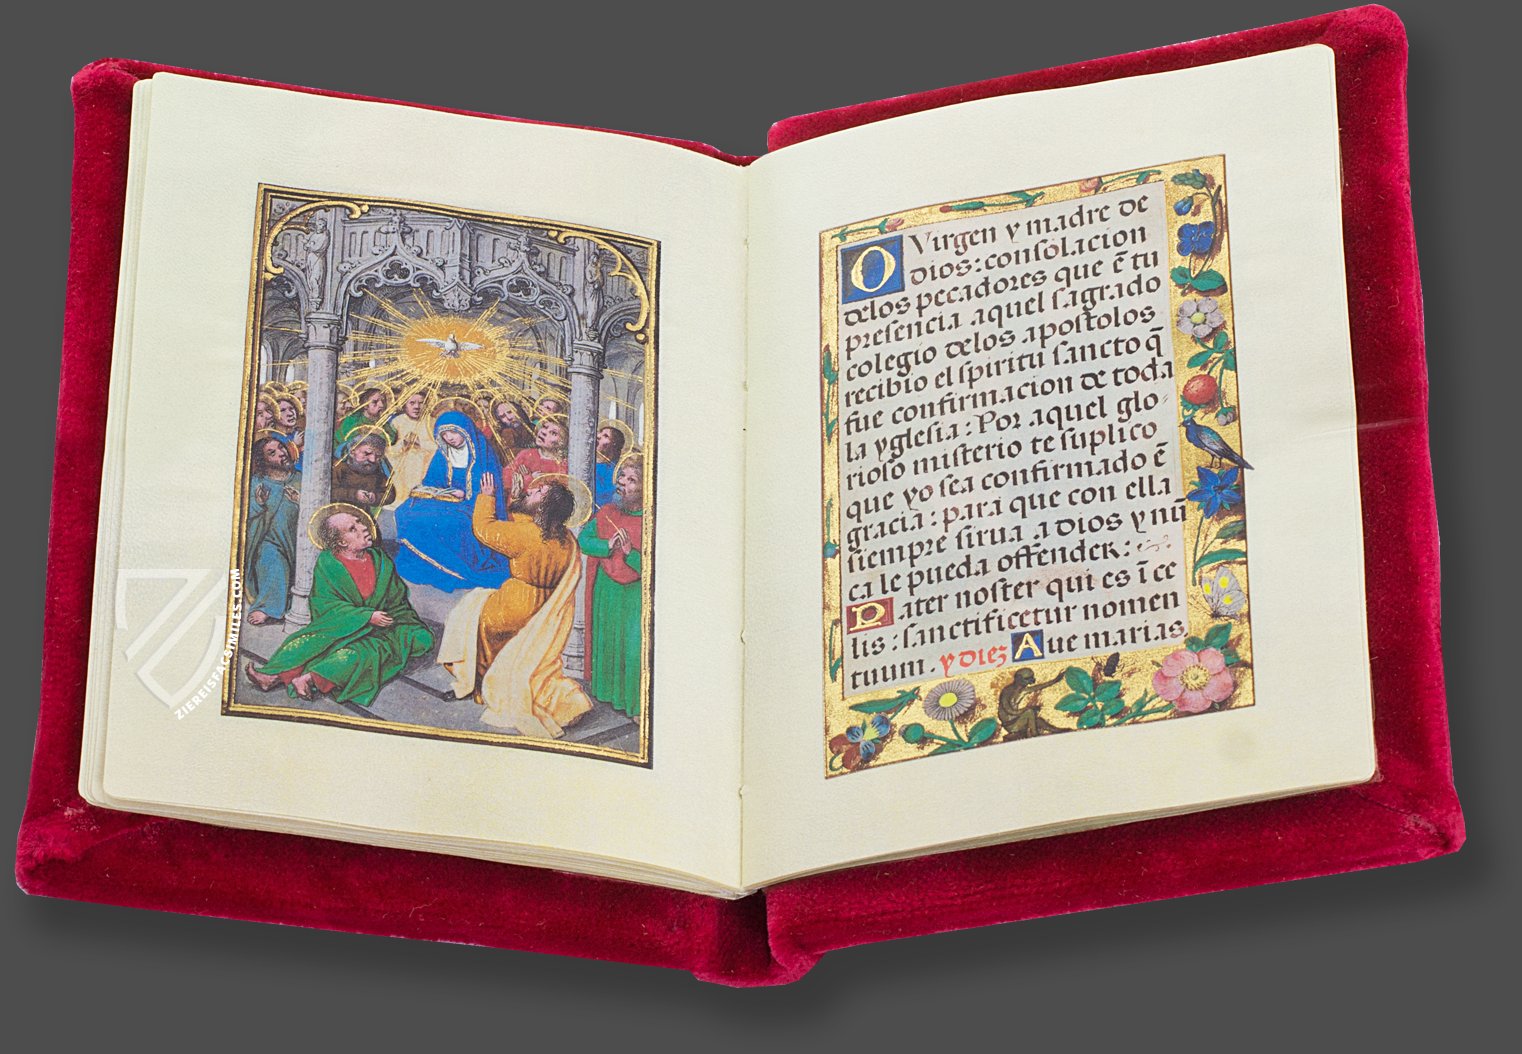 O Virgen y madre de
dios: consolacion
delos pecadores que ē tu
presencia aquel sagrado
colegio delos apostolos
recibio el spiritu sancto q̄
fue confirmacion de toda
la yglesia: Por aquel glo-
rioso misterio te suplico
que yo sea confirmado ē
gracia: para que con ella
siempre sirua a dios y nū
ca le pueda offender:
Pater noster qui es ī ce
lis: sanctificetur nomen
tuum. y diez Aue marias.
ZIEREISFACSIMILES.COM